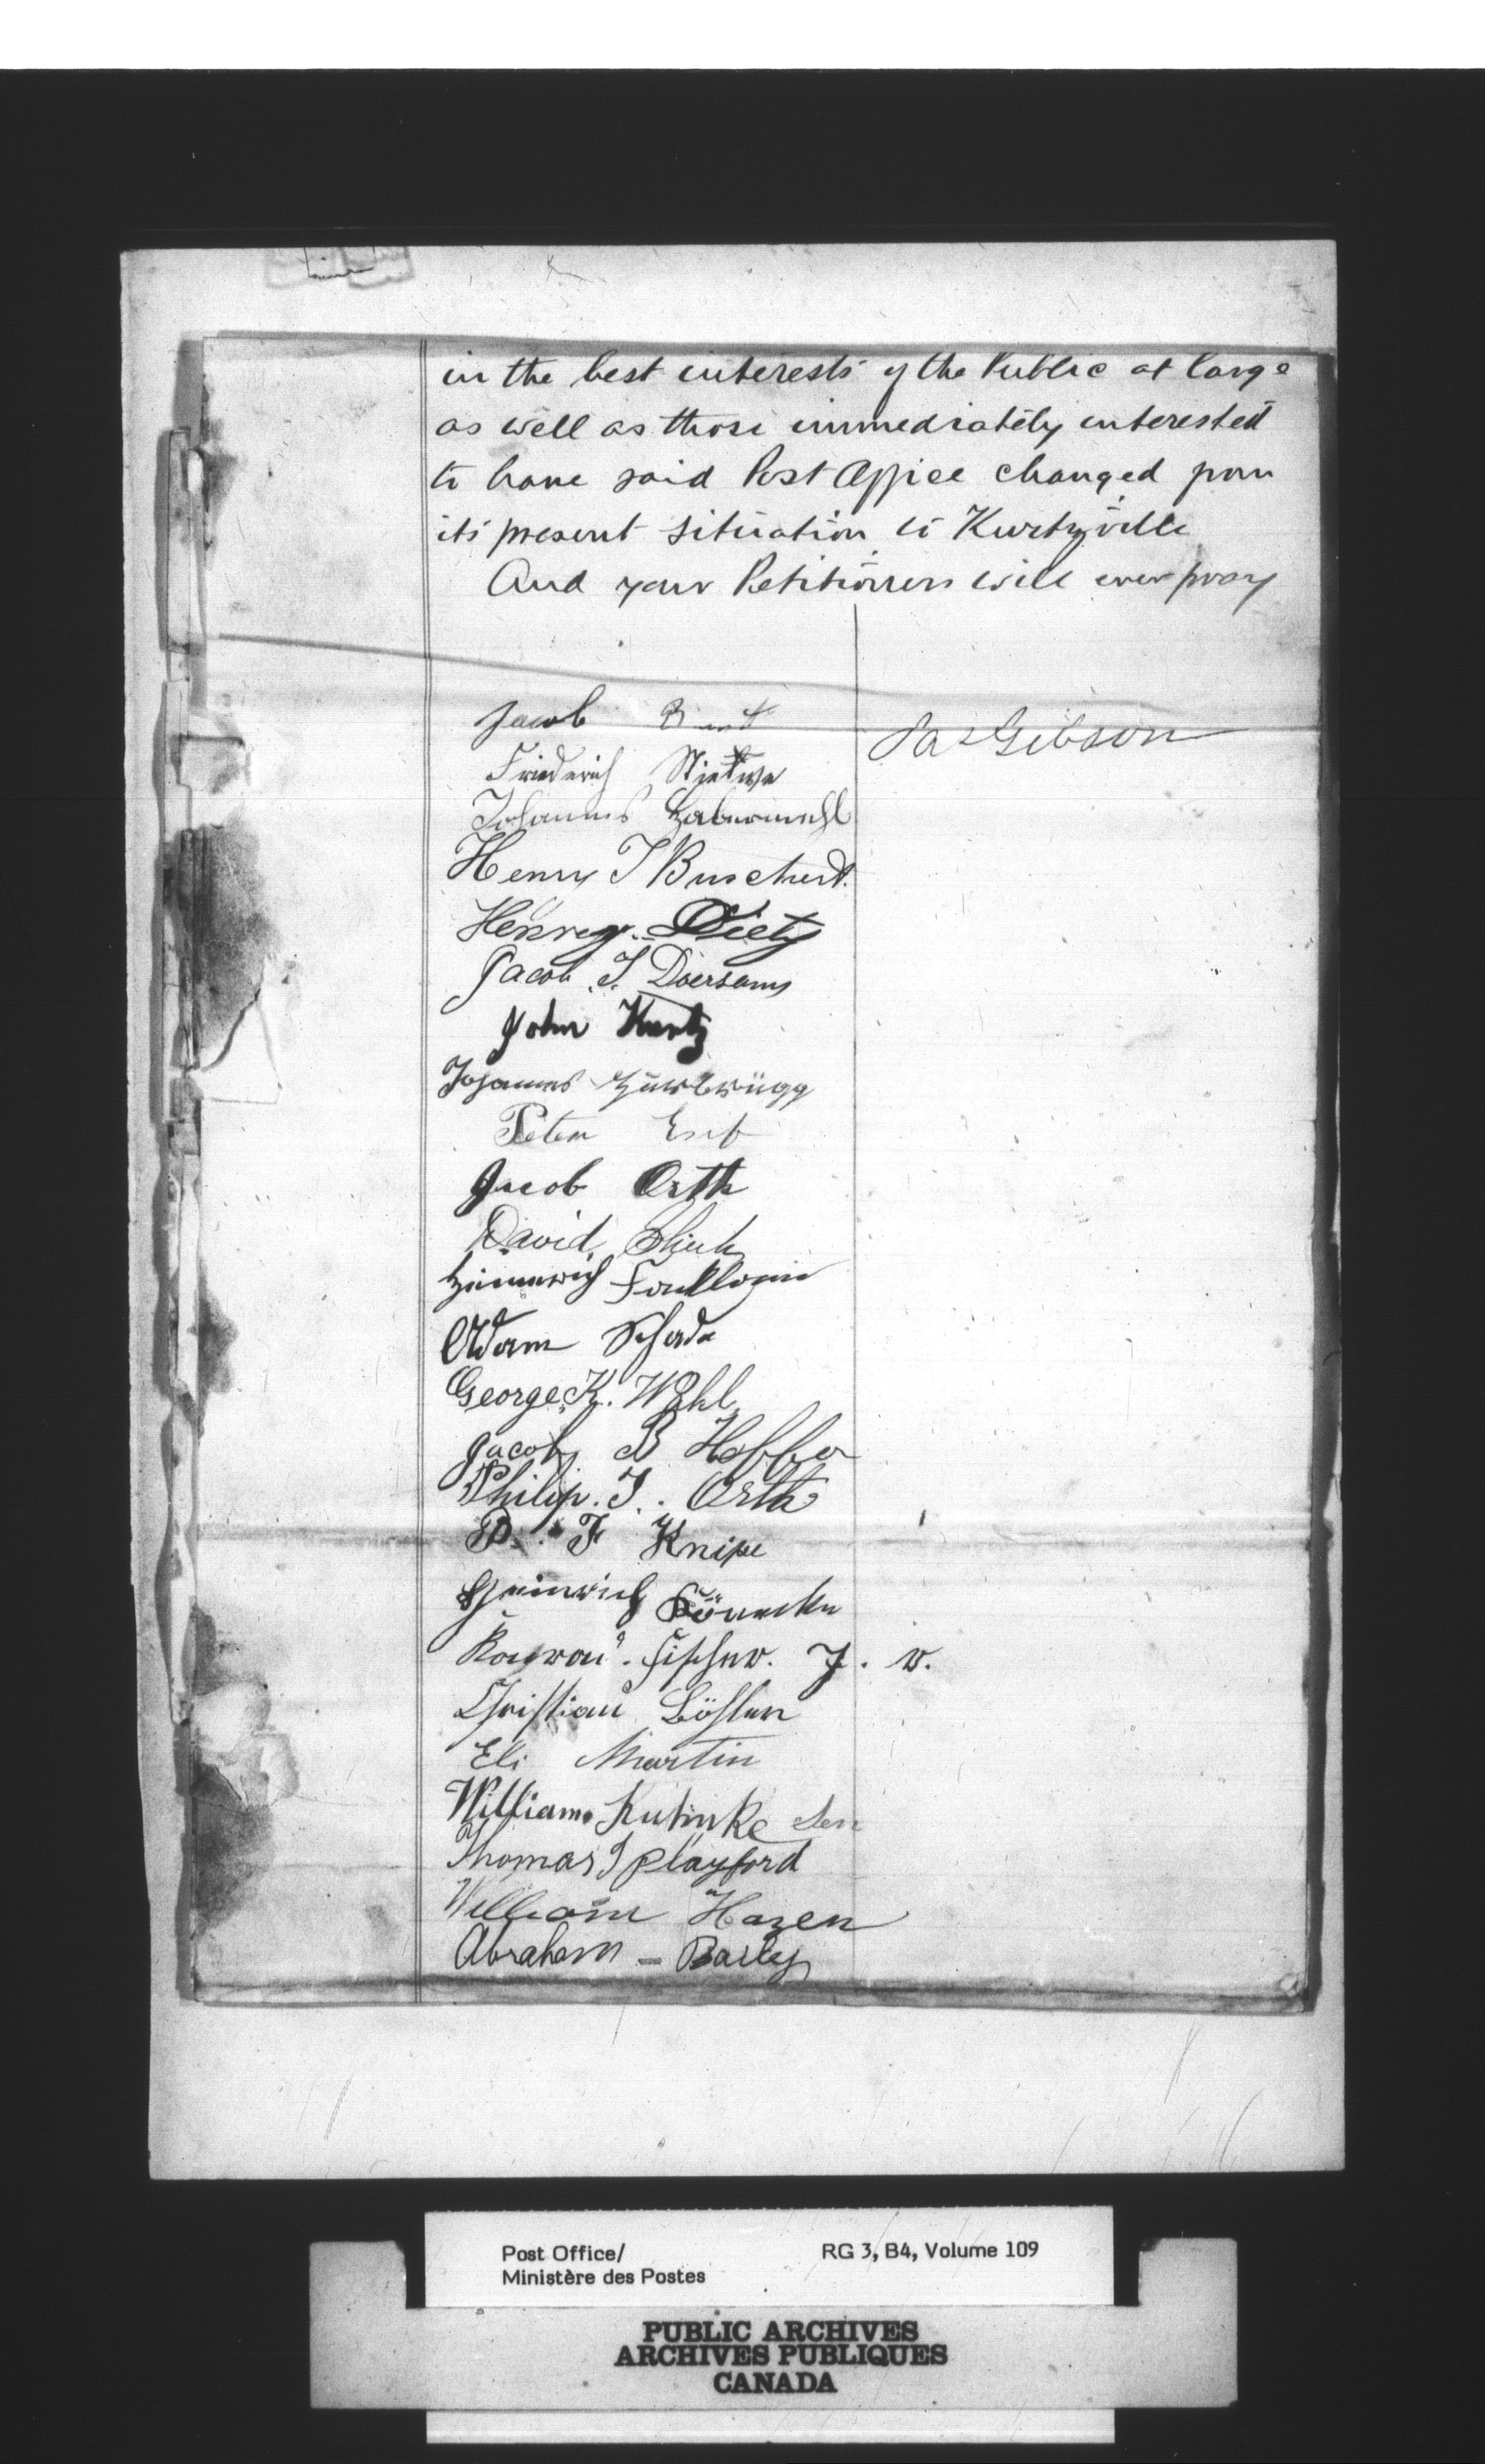 in the best interests of the Public at large
as well as those immediately interested
to have said Post Office changed from
its present situation to Kurtzville
And your Petitioners will ever pray
Jacob
Jas Gibson
Friederich
Johannes Habermehl
Henry J Buschert.
Henrey. Dietz
Jacob J. Doersam
John Kurtz
Johannes Zurbrügg
Peter Erb
Jacob Orth
David
Heinerich
Adam Schade
George K. Wahl
Jacob B
Philip. J. Orth
P. F Knipe
Heinrich Könecke
Konrad. Fischer. J. r.
Christian Böhler
Eli Martin
William Sen
Thomas J Playford
William Hazen
Abraham - Barley
Post Office/
Ministère des Postes
RG 3, B4, Volume 109
PUBLIC ARCHIVES
ARCHIVES PUBLIQUES
CANADA